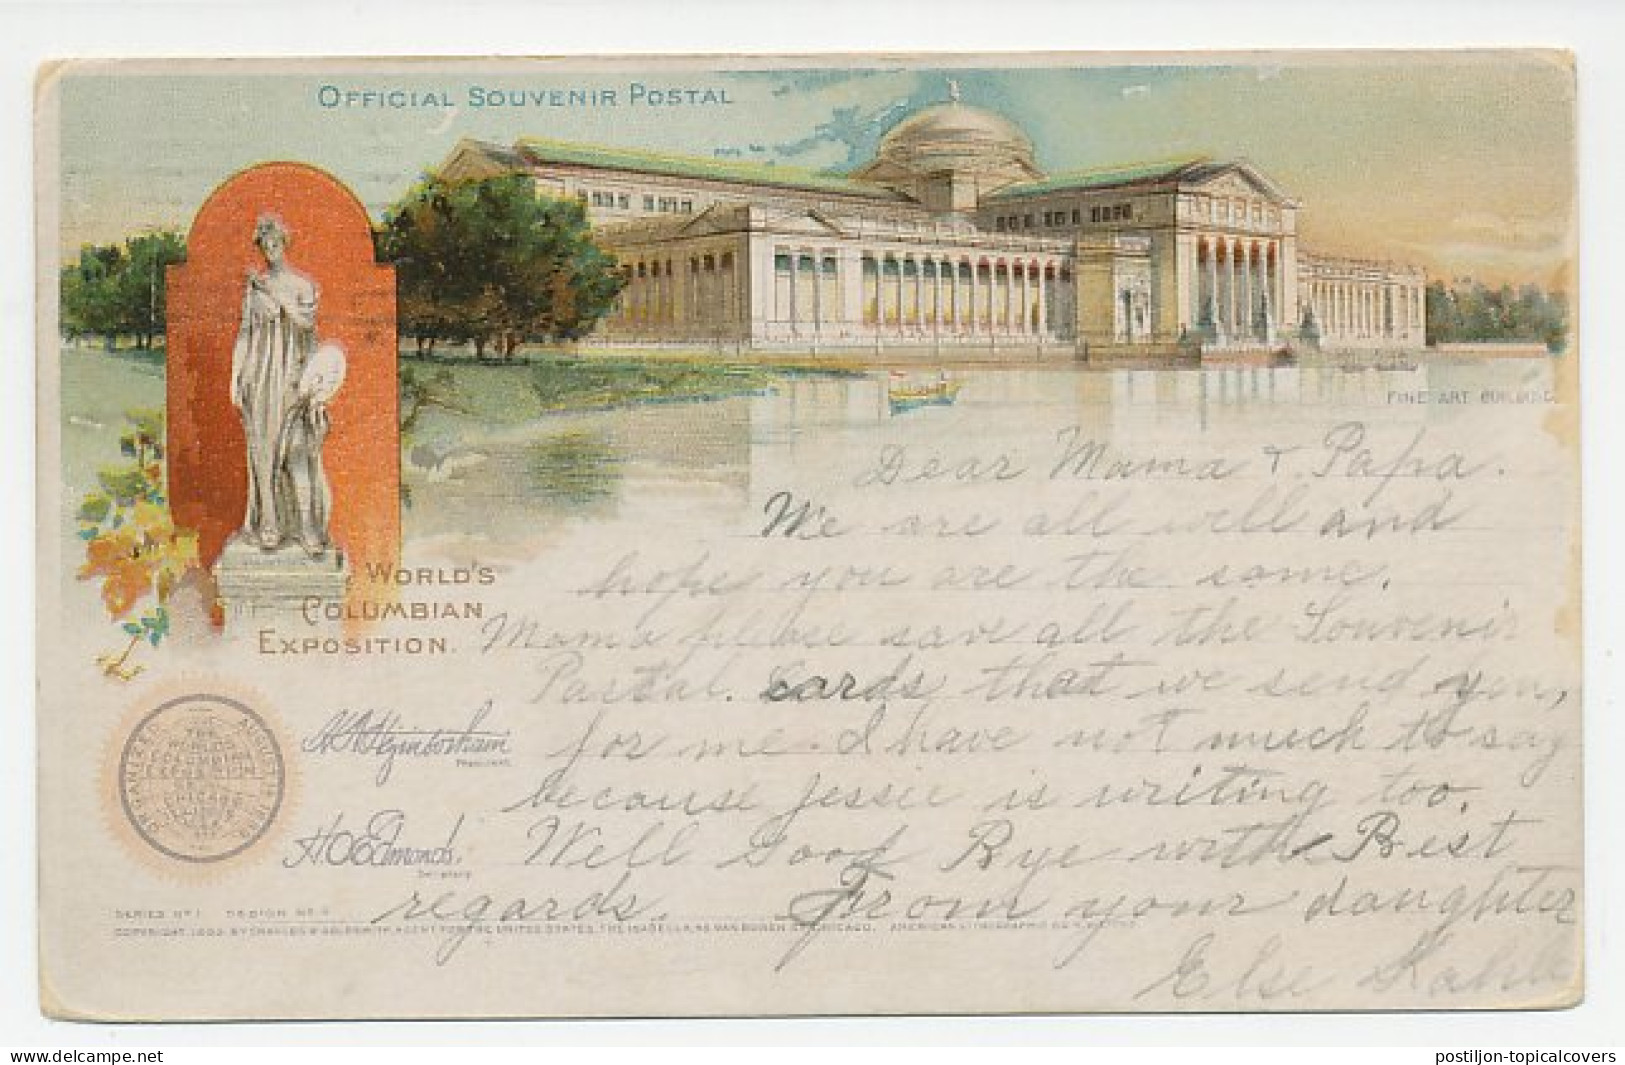 OFFICIAL SOUVENIR POSTAL
FINE ART BUILDING.
Dear Mama & Papa.
We are all well and
hope you are the same.
WORLD'S
COLUMBIAN
EXPOSITION.
Mama please save all the Souvenir
Postal. Cards, that we send you,
for me. I have not much to say
because Jessie is writing too.
Well Good Bye with Best
regards. From your daughter
Else
THE
WORLD'S
COLUMBIAN
EXPOSITION
CHICAGO
President.
H O Edmonds.
Secretary.
SERIES No 1 DESIGN No
COPYRIGHT, 1893, BY CHARLES W. GOLDSMITH, AGENT FOR THE UNITED STATES, THE ISABELLA, 48 VAN BUREN ST. CHICAGO. AMERICAN LITHOGRAPHIC CO. N.Y.
www.delcampe.net
postiljon-topicalcovers